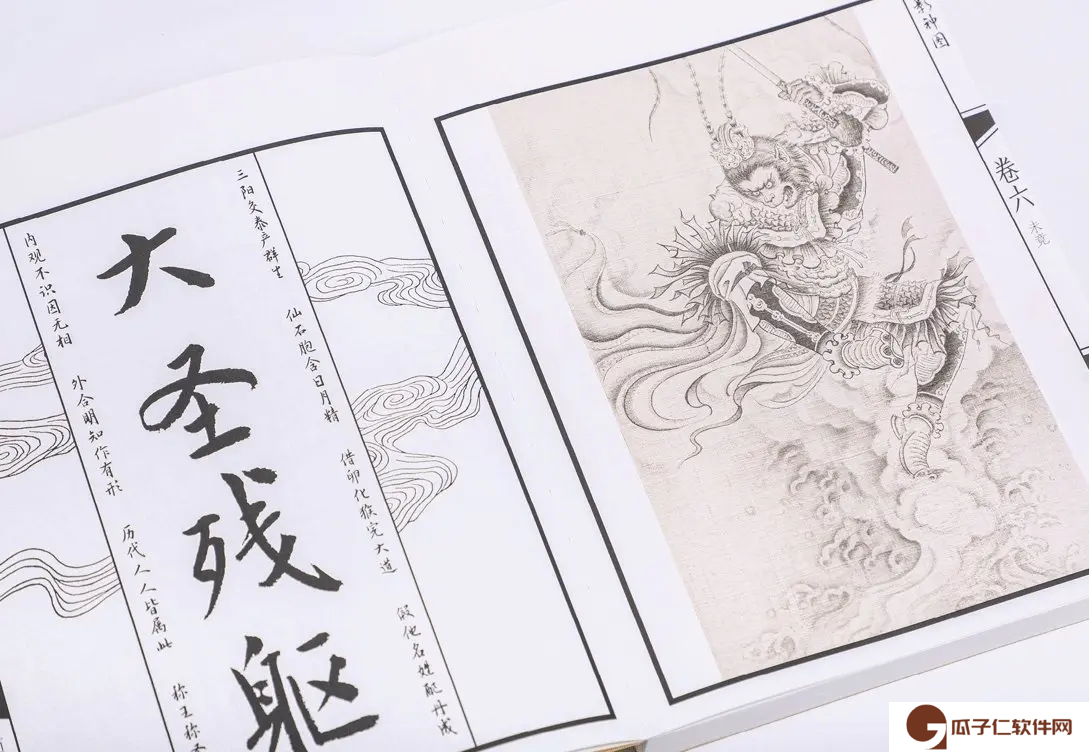 影神图
卷六
未竟
三阳交泰产群生
仙石胞含日月精
借卵化猴完大道
假他名姓配丹成
大圣残躯
内观不识因无相
外合明知作有形
历代人人皆属此
称王称圣
瓜子仁软件网